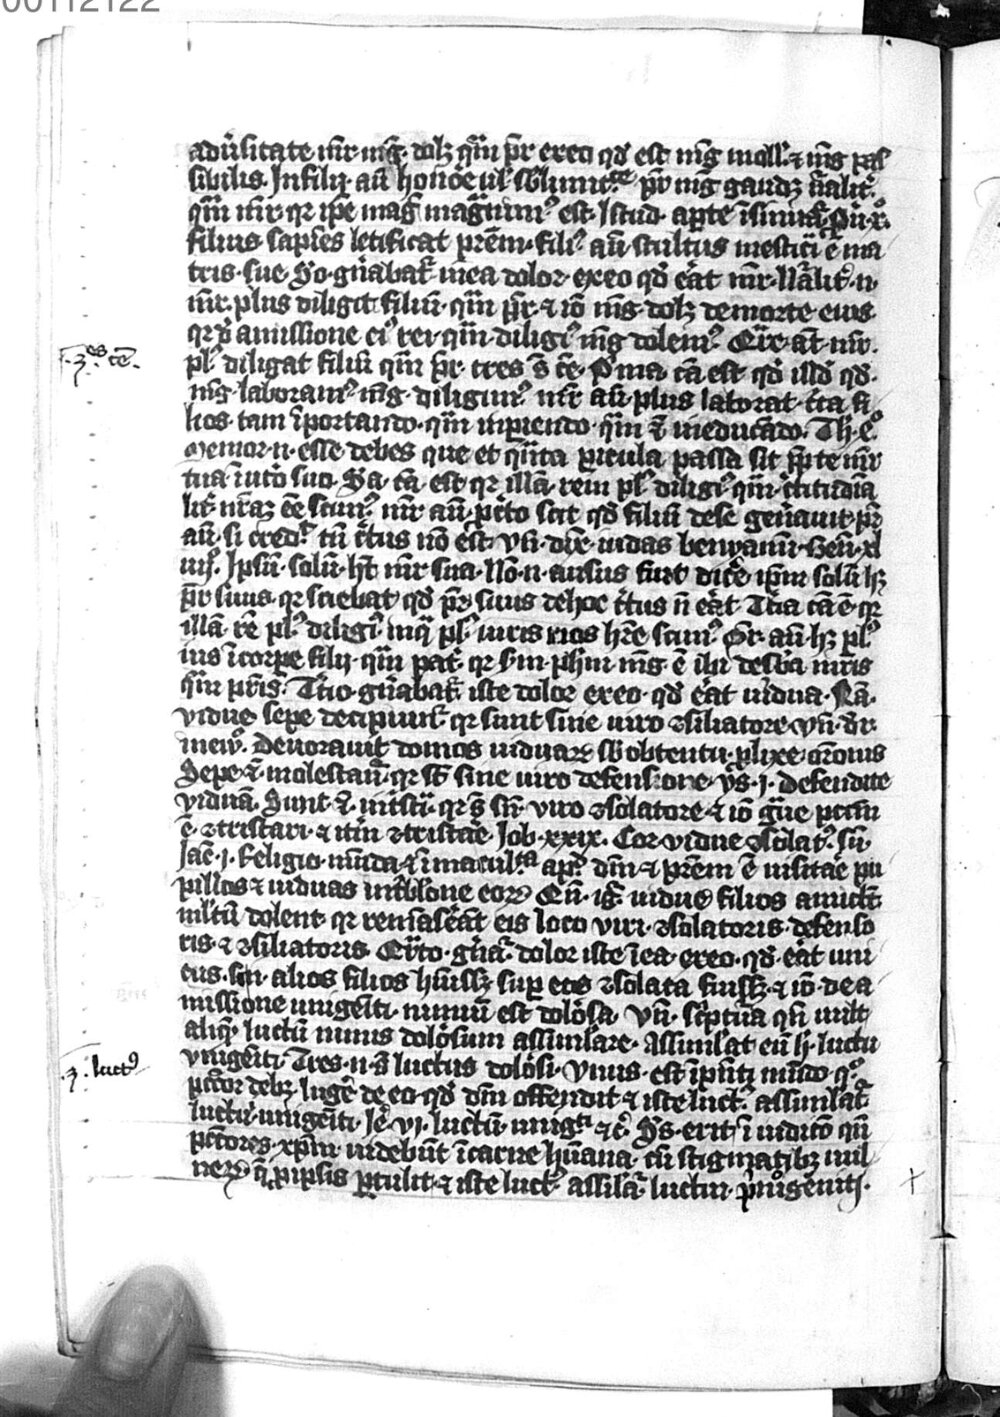 00112122
adu̅sitate mr̅ mg̅ dolꝫ qm̅ pr̅ ex eo qd̅ est mg̅ moll̅ ⁊ mg̅ pas
sibilis. In filii au̅ honoe̅ ul̅ pr̅ mg̅ gaudꝫ
qm̅ mr̅ qr ip̅e mag̅ est. Istud apte i̅sinuat̅
filius sapie̅s letificat pre̅m. fili⁹ au̅ stultus mestici̅a e̅ ma
tris sue. So gn̅abat̅ mea dolor ex eo qd̅ e̅at mr̅. Na̅lit̅ n̅
mr̅ plus diligit filiu̅ qm̅ pr̅ ⁊ io̅ mg̅ dolꝫ de morte eius
qr d̅ amissione ei⁹ rei qm̅ diligi⁹ mg̅ dolem⁹. Cur at̅ mr̅
3 es ce̅
pl⁹ diligat filiu̅ qm̅ pr̅ tres s̅ ce̅. P̅ma ca̅ est qd̅ illd̅ qd̅
mg̅ laboram⁹ mg̅ diligim⁹ mr̅ au̅ plus laborat c̅ca fi
lios tam i̅portando qm̅ in pariendo qm̅ ⁊ in educa̅do. Th. 4⁰
Memor n̅ esse debes que et qn̅ta p̲icula passa sit p̅ te mr̅
tua i̅ ut̅o suo. Sa̅ ca̅ est qr illa̅ rem pl⁹ diligi⁹ qm̅
lit̅ nr̅aꝫ e̅e scim⁹ mr̅ au̅ p̲c̅to scit qd̅ filiu̅ de se gen̅auit pr̅
au̅ si credi⁹ tn̅ c̅tus no̅ est. Vn̅ dix̅ iudas beniami̅ Gen̅ xl
iiij. Ip̅su̅ solu̅ hꝫ mr̅ sua. No̅ n̅ ausus fuit dice̅ ip̅m solu̅ hꝫ
pr̅ suus qr sciebat qd̅ pr̅ suus de hoc c̅tus n̅ e̅at. T̅cia ca̅ e̅ qr
illa̅ re̅ pl⁹ diligi⁹ in q̅ pl⁹ iuris nos hr̅e scim⁹. Mr̅ au̅ hꝫ pl⁹
ius i̅ corpe filii qm̅ pat̅ qr s̅m ph̅m mg̅ e̅ ibi de sb̅a mr̅is
qm̅ pr̅is. T̅cio gn̅abat̅ iste dolor ex eo qd̅ e̅at uidua. Na̅
vidue sepe decipiu̅t̅ qr sunt sine uiro ꝯsiliatore. Vn̅ dr̅
Deuorauit̅ domos uiduarꝝ sb̅ obtentu plixe or̅onis
Sepe ⁊ molestat̅ qr st̅ sine uiro defensione. ys. i. Defendite
vidua̅. Sunt ⁊ mesti̅ qr s̅ sn̅ viro ꝯsolatore ⁊ io̅ g̅ue pctm̅
e̅ ꝯtristari ⁊ it̅m ꝯtristae̅. Job xxix. Cor vidue ꝯsolat⁹ su̅
Jac̅. i. Religio mu̅da ⁊ i̅maculata ap⁹ dm̅ ⁊ pre̅m e̅ uisitae̅ pu
pillos ⁊ uiduas in t̅bl̅one eorꝝ. Cu̅ ig̅ uidue filios amictt̅
ml̅tu̅ dolent qr rema̅sea̅t eis loco viri ꝯsolatoris defenso
ris ⁊ ꝯsiliatoris. Qr̅to gn̅at̅ dolor iste i̅ ea ex eo qd̅ e̅at uni
cus. Si n̅ alios filios h̅uissꝫ sup eos ꝯsolata fuissꝫ ⁊ io̅ de a
missione unigenti̅ nimiu̅ est dolo̅sa. Vn̅ sc̅ptu̅a qn̅ uult
aliq̅ luctu̅ nimis dolo̅sum assimilare. Assimilat eu̅ h̅ luctu
3. luct⁹
vnigen̅ti. Tres n̅ s̅ luctus dolo̅si. Vnus est i̅ p̅n̅ti mu̅do q⁰
pct̅or debꝫ luge̅ de eo qd̅ dm̅ offendit ⁊ iste luct⁹ assimilat̅
luctui unigen̅ti. Je̅. vi. luctu̅ unigti̅ ⁊c̅. 2s erit i̅ iudicio qn̅
pct̅ores xp̅m uidebu̅t i̅ carne hu̅ana cu̅ stigmatibꝫ uul
nerꝝ q̅ p̲ ipsis p̲tulit ⁊ iste luct⁹ assila̅t̅ luctui p̅mogeniti.